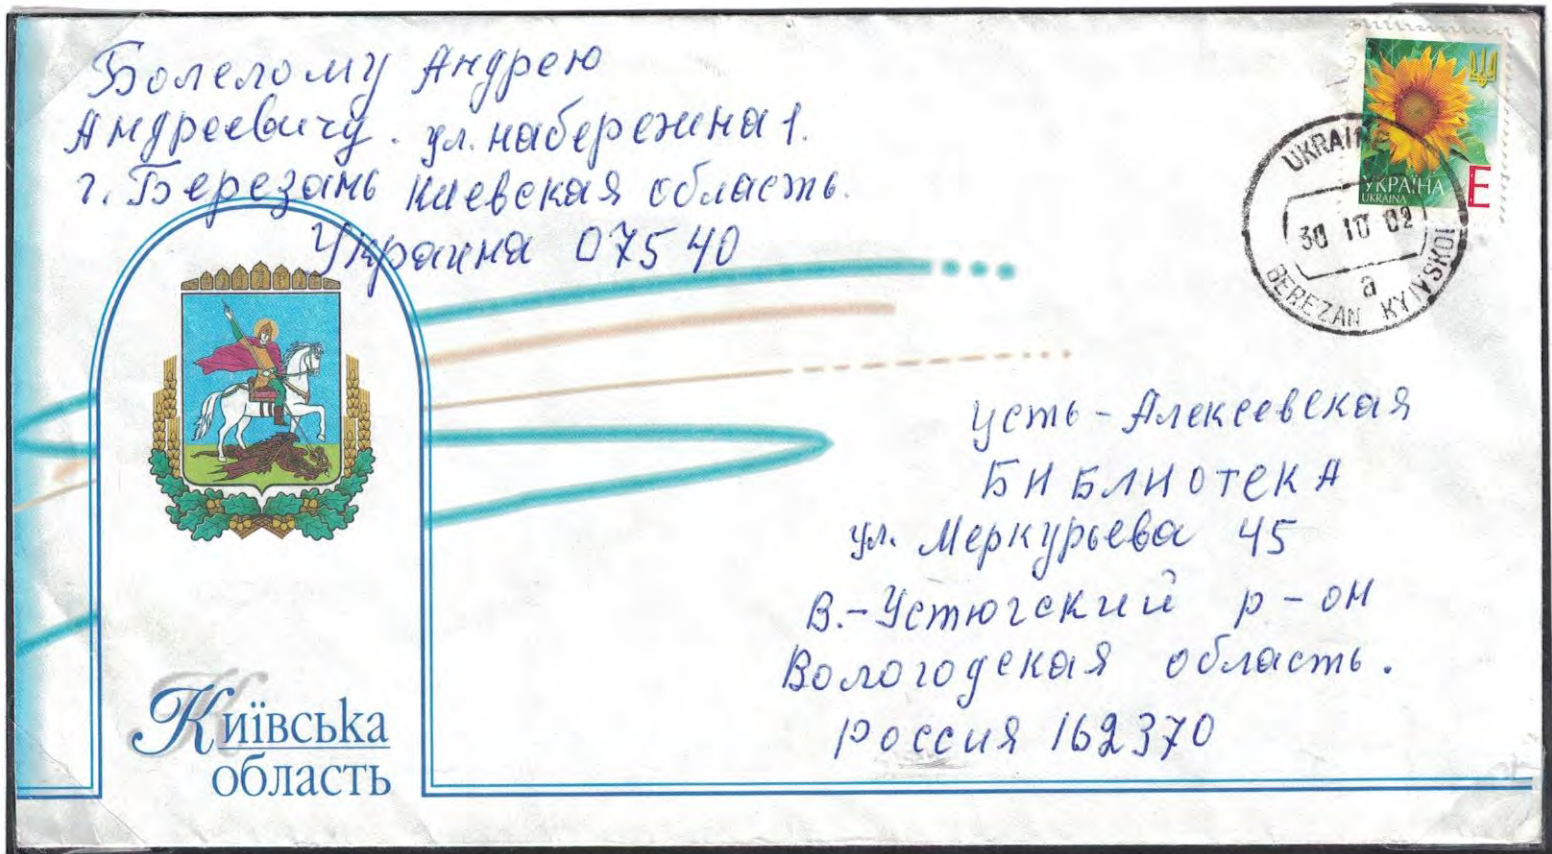 Болелому Андрею
Андреевичу. ул. набережна 1.
г. Березань Киевская область.
Украина 07540
УКРАЇНА E
UKRAINA
UKRAINE
30 10 02
а
BEREZAN KYIVSKOI
усть-Алексеевская
БИБЛИОТЕКА
ул. Меркурьева 45
В.-Устюгский р-он
Вологодская область.
Россия 162370
Київська
область